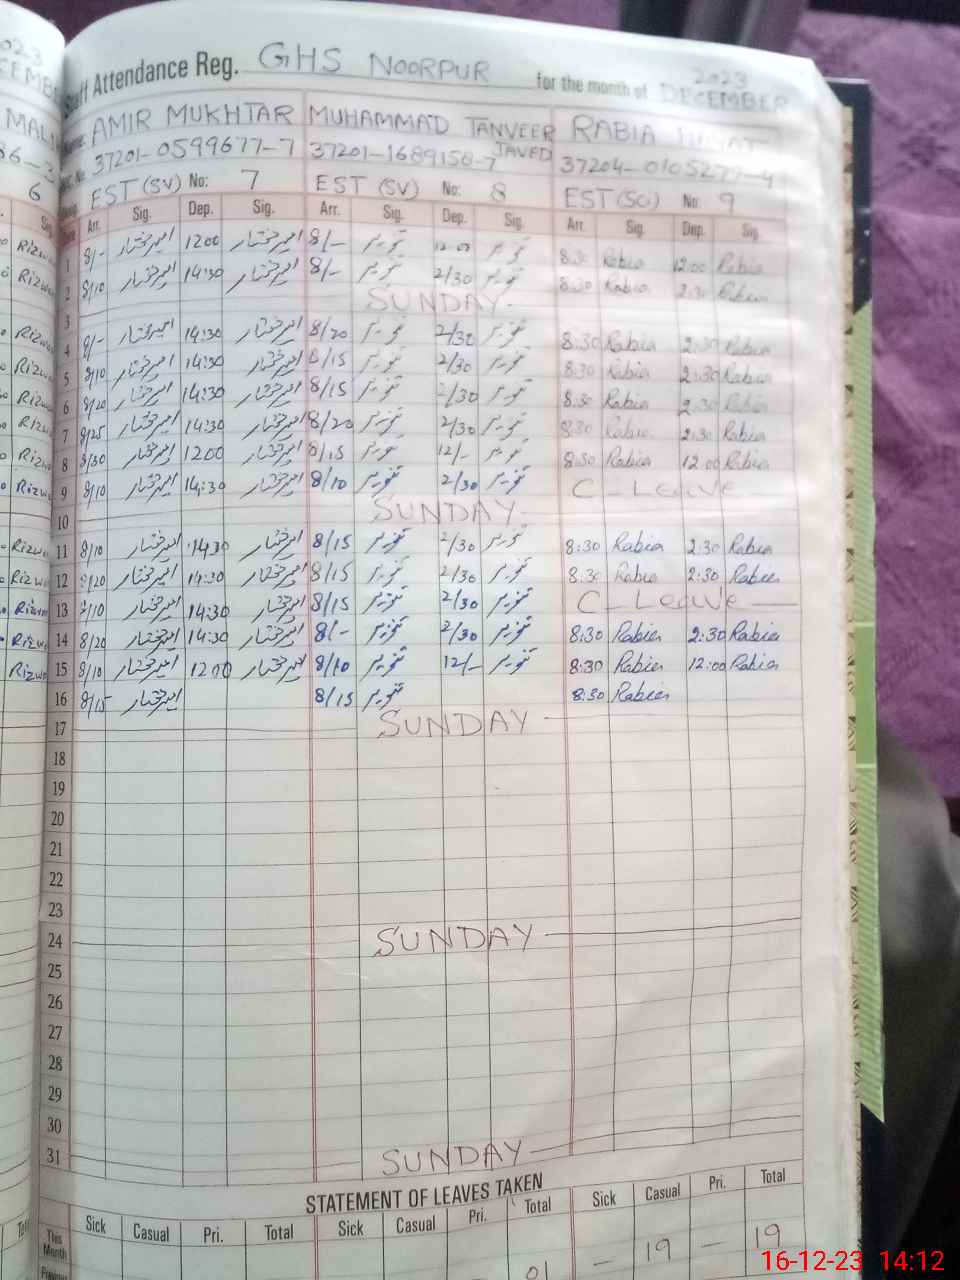 Staff Attendance Reg. GHS NOORPUR for the month of DECEMBER 2023
AMIR MUKHTAR MUHAMMAD TANVEER JAVED RABIA
37201-0599677-7 37201-1689158-7 37204-0105277-4
EST (SV) No: 7 EST (SV) No: 8 EST (SG) No 9
Arr. Sig. Dep. Sig. Arr. Sig. Dep. Sig. Arr. Sig. Dep. Sig
1 8/- امیر مختار 1200 امیر مختار 8/- تنویر 12-00 تنویر 8:30 Rabia 12:00 Rabia
2 8/10 امیر مختار 14:30 امیر مختار 8/- تنویر 2/30 تنویر 8:30 Rabia 2:30 Rabia
3 SUNDAY
4 8/- امیر مختار 14:30 امیر مختار 8/20 تنویر 2/30 تنویر 8:30 Rabia 2:30 Rabia
5 8/10 امیر مختار 14:30 امیر مختار 8/15 تنویر 2/30 تنویر 8:30 Rabia 2:30 Rabia
6 8/20 امیر مختار 14:30 امیر مختار 8/15 تنویر 2/30 تنویر 8:30 Rabia 2:30 Rabia
7 8/25 امیر مختار 14:30 امیر مختار 8/20 تنویر 2/30 تنویر 8:30 Rabia 2:30 Rabia
8 8/30 امیر مختار 1200 امیر مختار 8/15 تنویر 12/- تنویر 8:30 Rabia 12:00 Rabia
9 8/10 امیر مختار 14:30 امیر مختار 8/10 تنویر 2/30 تنویر C-Leave
10 SUNDAY
11 8/10 امیر مختار 1430 امیر مختار 8/15 تنویر 2/30 تنویر 8:30 Rabia 2:30 Rabia
12 8/20 امیر مختار 14:30 امیر مختار 8/15 تنویر 2/30 تنویر 8:30 Rabia 2:30 Rabia
13 8/10 امیر مختار 14:30 امیر مختار 8/15 تنویر 2/30 تنویر C-Leave
14 8/20 امیر مختار 14:30 امیر مختار 8/- تنویر 2/30 تنویر 8:30 Rabia 2:30 Rabia
15 8/10 امیر مختار 1200 امیر مختار 8/10 تنویر 12/- تنویر 8:30 Rabia 12:00 Rabia
16 8/15 امیر مختار 8/15 تنویر 8:30 Rabia
17 SUNDAY
18
19
20
21
22
23
24 SUNDAY
25
26
27
28
29
30
31 SUNDAY
STATEMENT OF LEAVES TAKEN
Sick Casual Pri. Total Sick Casual Pri. Total Sick Casual Pri. Total
This Month — 19 — 19
01
16-12-23 14:12